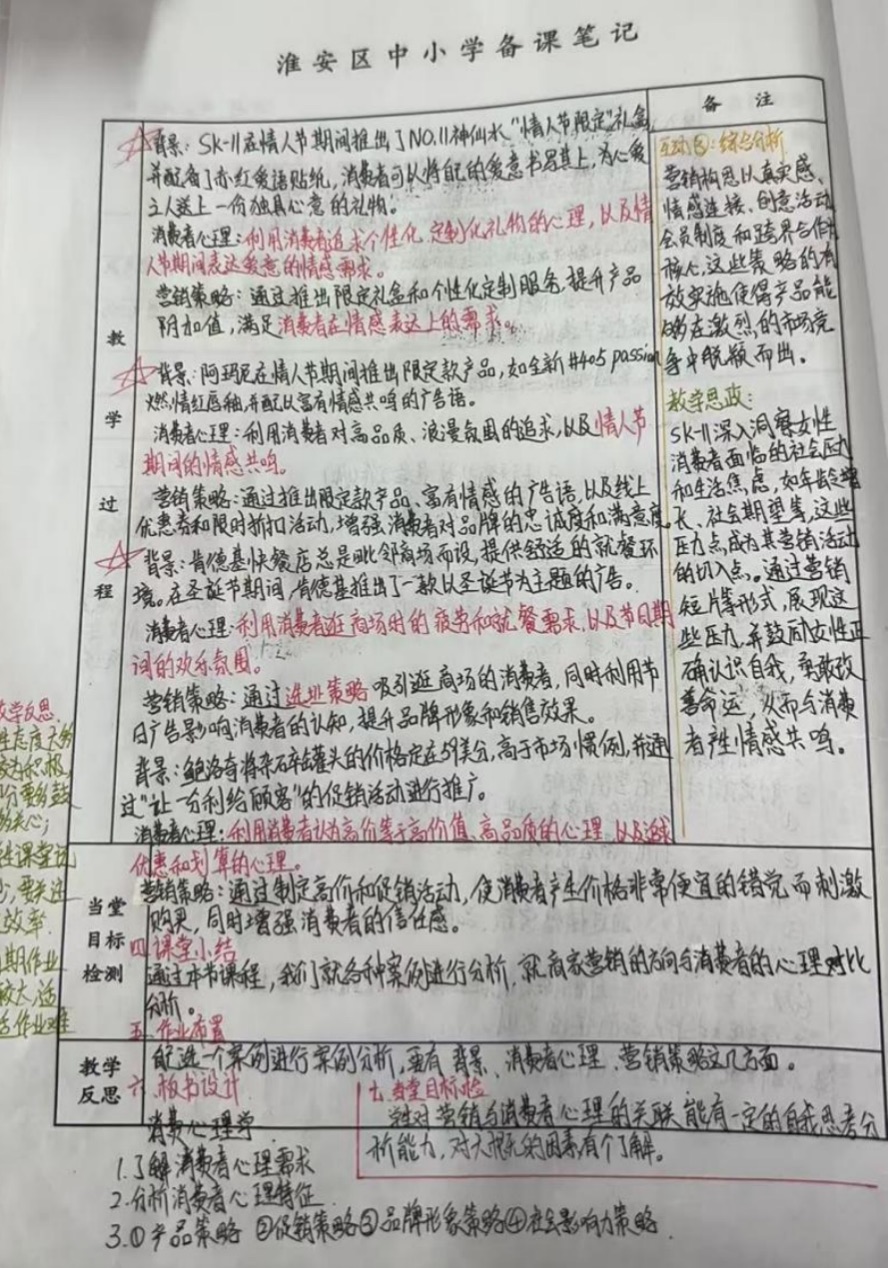 淮安区中小学备课笔记
备 注
教
学
过
程
背景：SK-II在情人节期间推出了NO.11神仙水"情人节限定"礼盒,
并配备了亦红爱语贴纸，消费者可以将自己的爱意书写其上，为心爱
之人送上一份独具心意的礼物。
消费者心理：利用消费者追求个性化、定制化礼物的心理，以及情
人节期间表达爱意的情感需求。
营销策略：通过推出限定礼盒和个性化定制服务，提升产品
附加值，满足消费者在情感表达上的需求。
背景：阿玛尼在情人节期间推出限定款产品，如全新#405 passion
燃情红唇釉，并配以富有情感共鸣的广告语。
消费者心理：利用消费者对高品质、浪漫氛围的追求，以及情人节
期间的情感共鸣。
营销策略：通过推出限定款产品、富有情感的广告语，以及线上
优惠券和限时折扣活动，增强消费者对品牌的忠诚度和满意度
背景：肯德基快餐店总是毗邻商场而设，提供舒适的就餐环
境。在圣诞节期间，肯德基推出了一款以圣诞节为主题的广告。
消费者心理：利用消费者逛商场时的疲劳和就餐需求，以及节日期
间的欢乐氛围。
营销策略：通过选址策略吸引逛商场的消费者，同时利用节
日广告影响消费者的认知，提升品牌形象和销售效果。
背景：鲍洛奇将杂碎罐头的价格定在59美分，高于市场惯例，并通
过"让一分利给顾客"的促销活动进行推广。
消费者心理：利用消费者认为高价等于高价值、高品质的心理，以及追求
优惠和划算的心理。
互动⑤：综合分析
营销构思以真实感、
情感连接、创意活动、
会员制度和跨界合作为
核心，这些策略的有
效实施使得产品能
够在激烈的市场竞
争中脱颖而出。
教学思政：
SK-II深入洞察女性
消费者面临的社会压力
和生活焦虑，如年龄增
长、社会期望等，这些
压力点成为其营销活动
的切入点。通过营销
短片等形式，展现这
些压力，并鼓励女性正
确认识自我，勇敢改
善命运，从而与消费
者产生情感共鸣。
教学反思
当堂
目标
检测
营销策略：通过制定高价和促销活动，使消费者产生价格非常便宜的错觉而刺激
购买，同时增强消费者的信任感。
四 课堂小结
通过本节课程，我们就各种案例进行分析，就商家营销的方向与消费者的心理对比
分析。
五. 作业布置
教学
反思
自选一个案例进行案例分析，要有背景、消费者心理、营销策略这几方面。
六. 板书设计
消费心理学
1.了解消费者心理需求
2.分析消费者心理特征
3.①产品策略 ②促销策略③品牌形象策略④社会影响力策略
七.当堂目标检
对营销与消费者心理的关联能有一定的自我思考分
析能力，的因素有个了解。